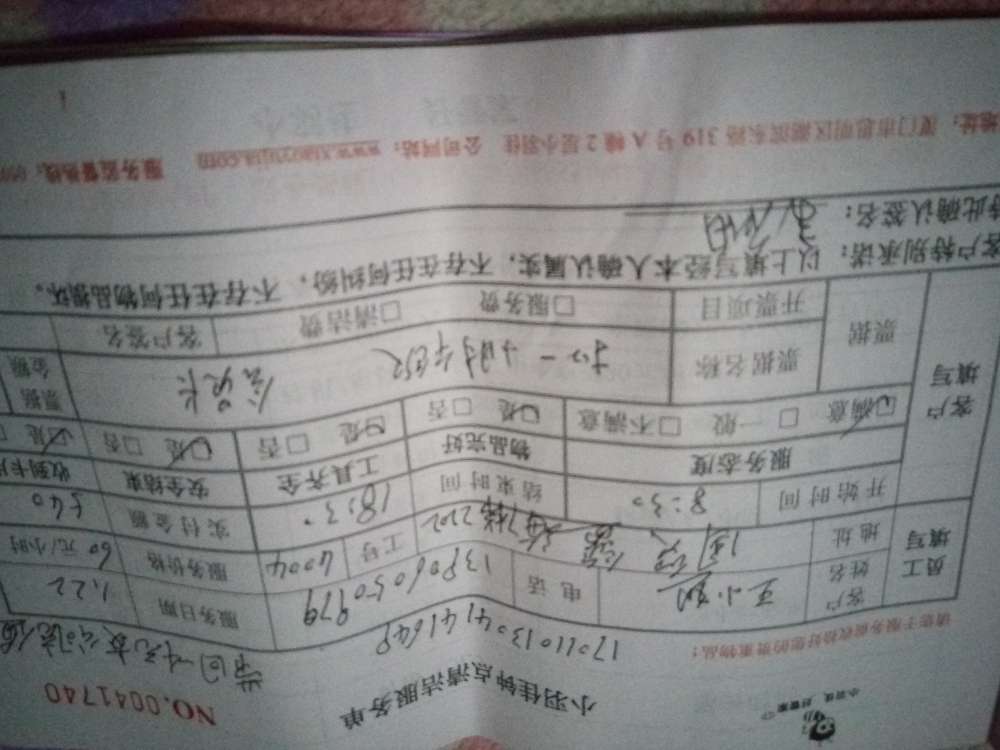 小羽佳 好管家
NO.0041740
小羽佳钟点清洁服务单
请您于服务前收拾好您的贵重物品：
1701101304141648
员工填写
客户姓名 电话 13806050979 服务日期 1.22
地址 工号 4004 服务价格 60 元/小时
开始时间 8:30 结束时间 18:30 实付金额 540
客户填写
服务态度 物品完好 工具齐全 安全结束 收到卡片
☑满意 □一般 □不满意 ☑是 □否 ☑是 □否 ☑是 □否 ☑是
票据 票据名称 票据金额
开票项目 □服务费 □清洁费 客户签名
客户特别承诺：以上填写经本人确认属实，不存在任何纠纷，不存在任何物品损坏。
特此确认签名：
地址：厦门市思明区湖滨东路 319 号 A 幢 2 层小羽佳 公司网站：www.xiaoyujia.com 服务监督热线：